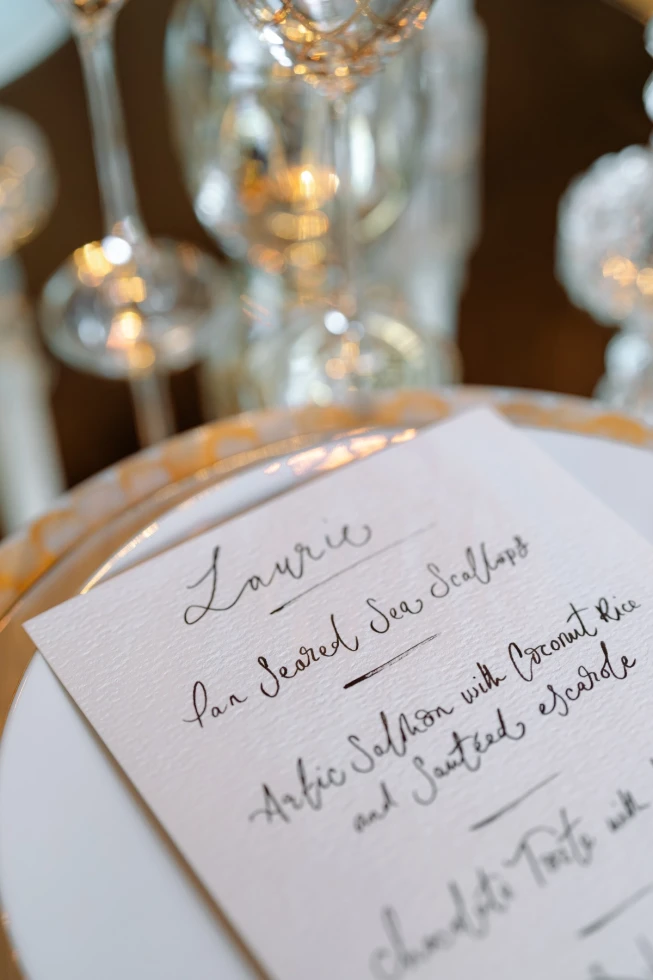 Laurie
Pan Seared Sea Scallops
Artic Salmon with Coconut Rice
and Sautéed escarole
Chocolate Torte with